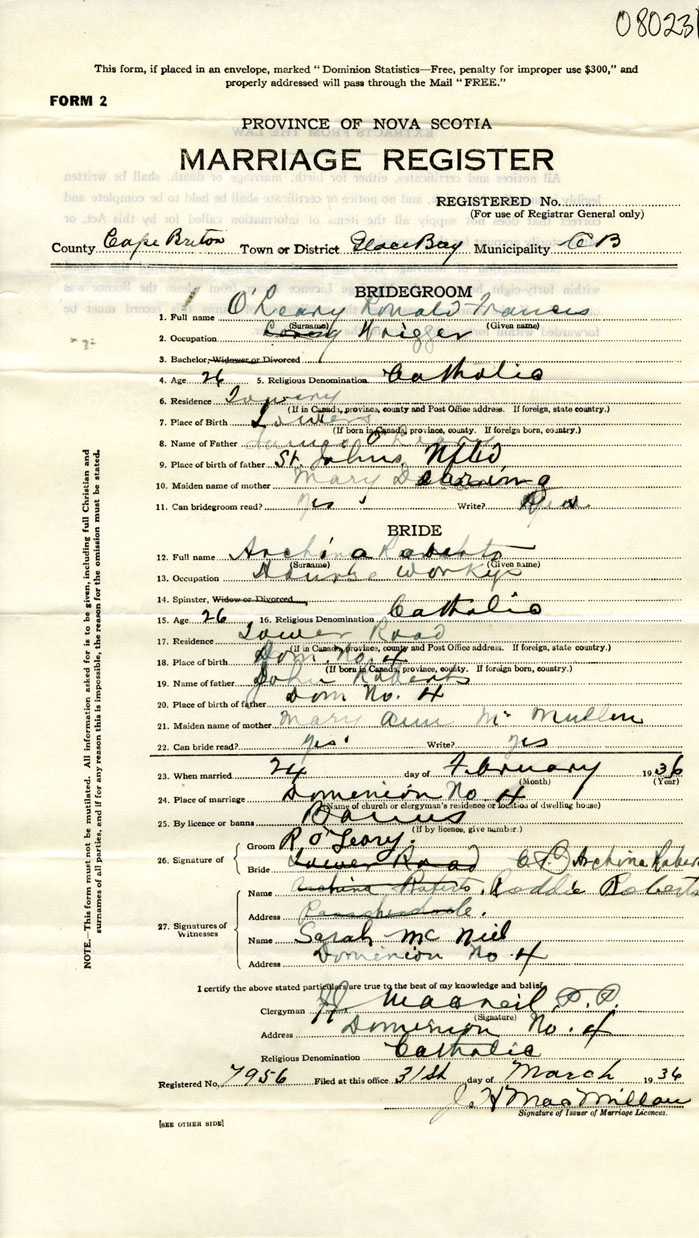 08023
This form, if placed in an envelope, marked "Dominion Statistics—Free, penalty for improper use $300," and
properly addressed will pass through the Mail "FREE."
FORM 2
PROVINCE OF NOVA SCOTIA
MARRIAGE REGISTER
REGISTERED No.
(For use of Registrar General only)
County Cape Breton Town or District Glace Bay Municipality C B
BRIDEGROOM
1. Full name O'Leary Ronald Francis
(Surname) (Given name)
2. Occupation
3. Bachelor, Widower or Divorced
4. Age 26 5. Religious Denomination Catholic
6. Residence
(If in Canada, province, county and Post Office address. If foreign, state country.)
7. Place of Birth
(If born in Canada, province, county. If foreign born, country.)
8. Name of Father James O'Leary
9. Place of birth of father St. Johns, Nfld
10. Maiden name of mother Mary
11. Can bridegroom read? Yes Write? Yes
BRIDE
12. Full name Archina Roberts
(Surname) (Given name)
13. Occupation House Worker
14. Spinster, Widow or Divorced
15. Age 26 16. Religious Denomination Catholic
17. Residence Lower Road
(If in Canada, province, county and Post Office address. If foreign, state country.)
18. Place of birth Dom. No. 4
(If born in Canada, province, county. If foreign born, country.)
19. Name of father John Roberts
20. Place of birth of father Dom No. 4
21. Maiden name of mother Mary Ann Mc Mullen
22. Can bride read? Yes Write? Yes
23. When married 24 day of February 1936
(Month) (Year)
24. Place of marriage Dominion No. 4
(Name of church or clergyman's residence or location of dwelling house)
25. By licence or banns Banns
(If by licence, give number.)
26. Signature of Groom R O'Leary.
Bride Lower Road Archina Rober
27. Signatures of Witnesses
Name Archina Roberts. Roddie Roberts
Address Passchendale.
Name Sarah Mc Neil
Address Dominion No. 4
NOTE.—This form must not be mutilated. All information asked for is to be given, including full Christian and
surnames of all parties, and if for any reason this is impossible, the reason for the omission must be stated.
I certify the above stated particulars are true to the best of my knowledge and belief.
Clergyman MacNeil P. P.
(Signature)
Address Dominion No. 4
Religious Denomination Catholic
Registered No. 7956 Filed at this office 31st day of March 1936
J. H MacMillan
Signature of Issuer of Marriage Licences.
[SEE OTHER SIDE]